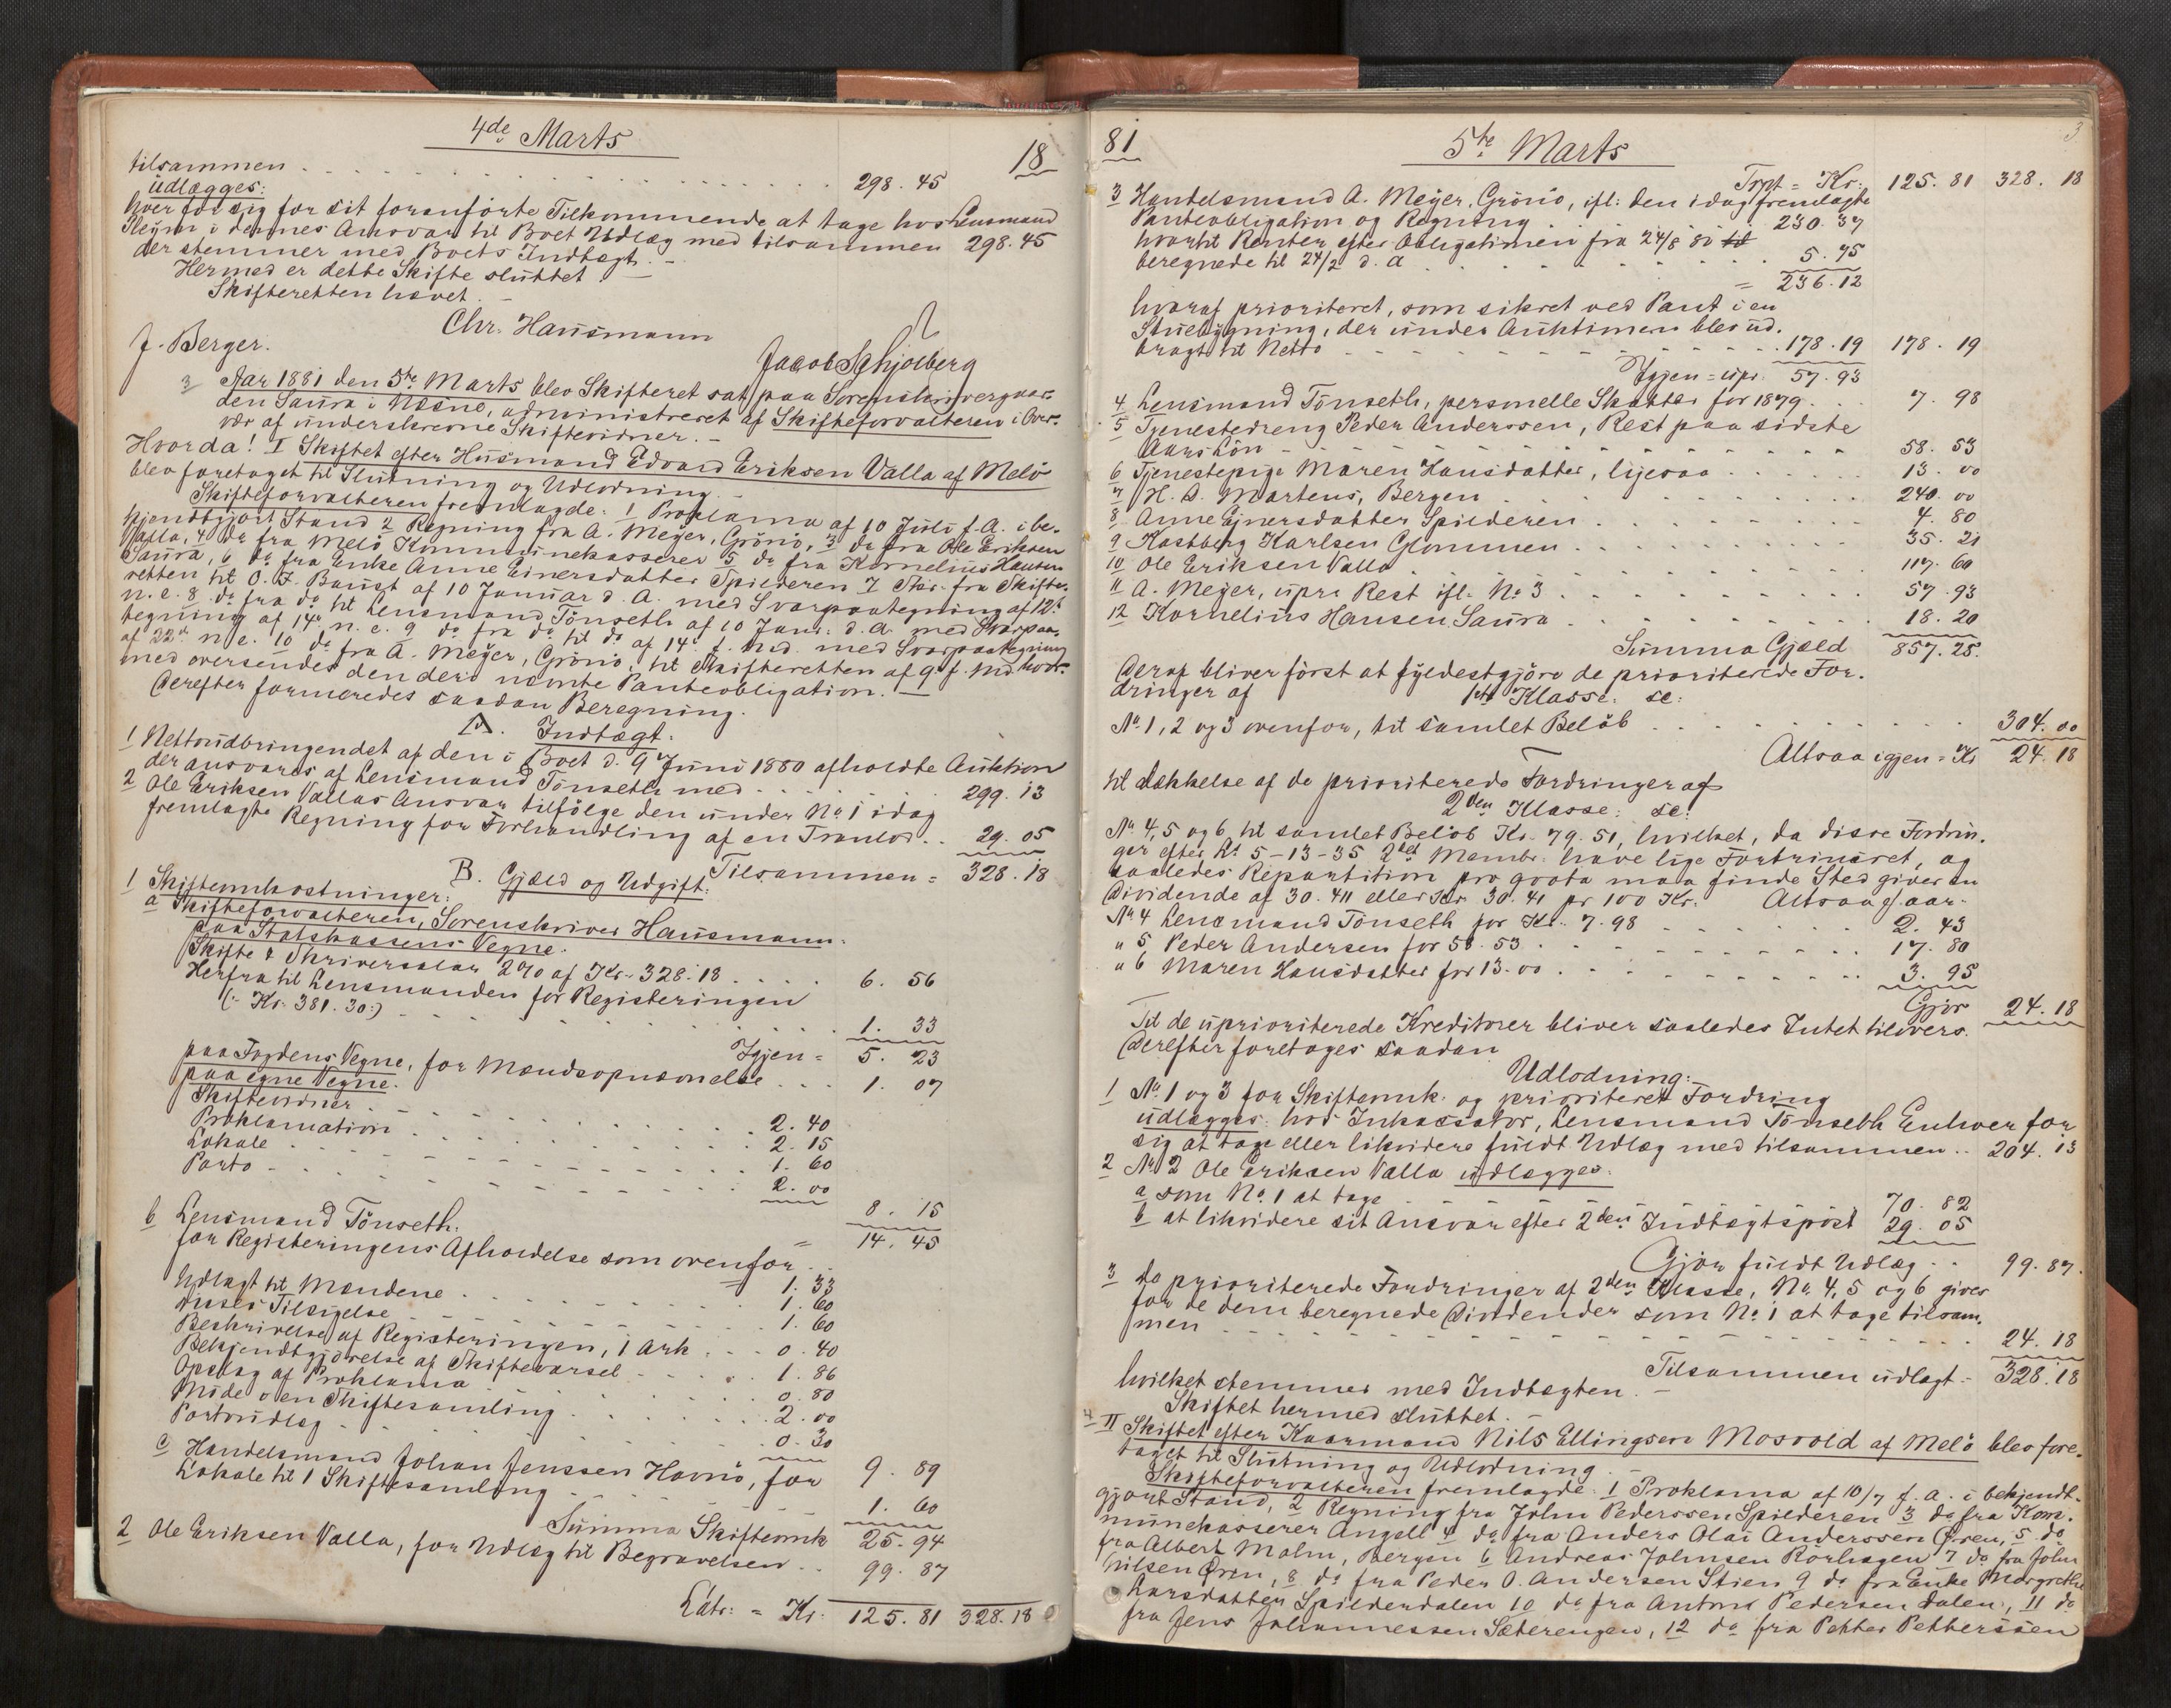 4de Marts
18
tilsammen . . . . 298. 45
udlægges:
hver for sig for sit foranførte Tilkommende at tage hos Lensmand
i dennes Ansvar til Boet Udlæg med tilsammen 298. 45
der stemmer med Boets Indtægt. -
Hermed er dette Skifte sluttet. -
Skifteretten hævet. -
Chr. Hausmann
J. Berger.
Jacob Schjolberg
3 Aar 1881 den 5te Marts blev Skifteret sat paa Sorenskrivergaar-
den Saura i Nesne, administreret af Skifteforvalteren i Over-
vær af underskrevne Skiftevidner. -
Hvorda! I Skiftet efter Husmand Edvard Eriksen Valla af Melö
blev foretaget til Slutning og Udlodning. -
Skifteforvalteren fremlagde: 1 Proklama af 10 Juli f. A. i be-
kjendtgjort Stand 2 Regning fra A. Meÿer, Grönö, 3 do fra Ole Eriksen
Valla, 4 do fra Melö Kommunekasserer 5 do fra Kornelius Hansen
Saura, 6 do fra Enke Anne Einersdatter Spilderen 7 Skr. fra Skifte-
retten til O. F. Baust af 10 Januar d. A. med Svarpaategning af 12te
n. e. 8 do fra do til Lensmand Tönseth af 10 Janr. d. A. med Svarpaa-
tegning af 14de n. e. 9 do fra do til do af 14 f. Md. med Svarpaategning
af 22de n. e. 10 do fra A. Meÿer, Grönö, til Skifteretten af 9 f. Md. hvor-
med oversendes den deri nævnte Panteobligation. -
Derefter formeredes saadan Beregning.
A. Indtægt.
1 Nettoudbringendet af den i Boet d. 9 Juni 1880 afholdte Auktion
der ansvares af Lensmand Tönseth med . . . 299. 13
2 Ole Eriksen Vallas Ansvar tilfölge den under No 1 idag
fremlagte Regning for Forhandling af en Tranlod . . 29. 05
Tilsammen = 328. 18
B. Gjæld og Udgift.
1 Skifteomkostninger:
a Skifteforvalteren, Sorenskriver Hausmann.
paa Statskassens Vegne.
Skifte & Skriversalær 2% af Kr. 328. 18 . . . 6. 56
Herfra til Lensmanden for Registeringen
(:- Kr. 381. 30:) . . . 1. 33
Igjen = 5. 23
paa Fogdens Vegne, for Mændsopnævnelse . . . 1. 07
paa egne Vegne.
Skiftevidner . . . 2. 40
Proklamation . . . 2. 15
Lokale . . . 1. 60
Porto . . . 2. 00
8. 15
= 14. 45
b Lensmand Tönseth.
for Registeringens Afholdelse som ovenfor . . 1. 33
Udlagt til Mændene . . . 1. 60
disses Tilsigelse . . . 1. 60
Beskrivelse af Registeringen, 1 Ark . . . 0. 40
Bekjendtgjörelse af Skiftevarsel . . . 1. 86
Opslag af Proklama . . . 0. 80
Möde i en Skiftesamling . . . 2. 00
Portoudlæg . . . 0. 30
9. 89
c Handelsmand Johan Jenssen Havnö, for
Lokale til 1 Skiftesamling . . . 1. 60
Summa Skifteomk. 25. 94
2 Ole Eriksen Valla, for Udlæg til Begravelsen . . 99. 87
Latr. = Kr. 125. 81 328. 18
81
5te Marts
3
Trpt = Kr. 125. 81 328. 18
3 Handelsmand A. Meÿer, Grönö, ifl. den idag fremlagte
Panteobligation og Regning . . . 230. 37
hvortil Renter efter Obligationen fra 24/8 80 til
beregnede til 24/2 d. A . . . 5. 75
= 236. 12
hvoraf prioriteret, som sikret ved Pant i en
Stuebygning, der under Auktionen blev ud-
bragt til Netto . . . 178. 19 178. 19
Igjen = upr. 57. 93
4 Lensmand Tönseth, personelle Skatter for 1879 . . . 7. 98
5 Tjenestedreng Peder Anderssen, Rest paa sidste
Aars Lön . . . 58. 53
6 Tjenestepige Maren Hansdatter, ligesaa . . . 13. 00
7 H. D. Martens, Bergen . . . 240. 00
8 Anne Ejnersdatter Spilderen . . . 4. 80
9 Hartberg Karlsen Glommen . . . 35. 21
10 Ole Eriksen Valla . . . 117. 60
11 A. Meÿer, upr. Rest ifl. No 3 . . . 57. 93
12 Kornelius Hansen Saura . . . 18. 20
Summa Gjæld 857. 25.
Deraf bliver först at fyldestgjöre de prioriterede For-
dringer af 1ste Klasse: sc:
No 1, 2 og 3 ovenfor, til samlet Belöb . . . 304. 00
Altsaa igjen = Kr 24. 18
til Dækkelse af de prioriterede Fordringer af
2den Klasse: sc:
No 4, 5 og 6, til samlet Belöb Kr. 79. 51, hvilket, da disse Fordrin-
ger efter L. 5-13-35 2det Membr. have lige Fortrinsret, og
saaledes Repartition pro qvota maa finde Sted giver en
Dividende af 30. 411 eller Kr. 30. 41 pr 100 Kr. Altsaa
No 4 Lensmand Tönseth for Kr. 7. 98 . . . 2. 43
" 5 Peder Andersen for 58. 53 . . . 17. 80
" 6 Maren Hansdatter for 13. 00 . . . 3. 95
Gjör 24. 18
Til de uprioriterede Kreditorer bliver saaledes Intet tilovers.
Derefter foretages saadan
Udlodning:
1 No 1 og 3 for Skifteomk. og prioriteret Fordring
udlægges: hos Inkassator, Lensmand Tönseth Enhver for
sig at tage eller likvidere fuldt Udlæg med tilsammen . . 204. 13
2 No 2 Ole Eriksen Valla udlægges.
a som No 1 at tage . . . 70. 82
b at likvidere sit Ansvar efter 2den Indtægtspost 29. 05
Gjör fuldt Udlæg . . 99. 87.
3 de prioriterede Fordringer af 2den Klasse, No 4, 5 og 6 gives
for de dem beregnede Dividender som No 1 at tage tilsam-
men . . . 24. 18
Tilsammen udlagt = 328. 18
hvilket stemmer med Indtægten. -
Skiftet hermed sluttet. -
4 II Skiftet efter Kaarmand Nils Ellingsen Mosvold af Melö blev fore-
taget til Slutning og Udlodning. -
Skifteforvalteren fremlagde: 1 Proklama af 10/7 f. A. i bekjendt-
gjort Stand, 2 Regning fra John Pederssen Spilderen 3 do fra Kom-
munekasserer Angell 4 do fra Anders Olai Anderssen Ören, 5 do
fra Albert Malm, Bergen 6 Andreas Johnsen Rorhagen 7 do fra John
Nilsen Ören, 8 do fra Peder O. Andersen Stien 9 do fra Enke Margrethe
Larsdatter Spilderdalen 10 do fra Anton Pedersen Dalen, 11 do
fra Jens Johannessen Sæterengen, 12 do fra Petter Petterssen